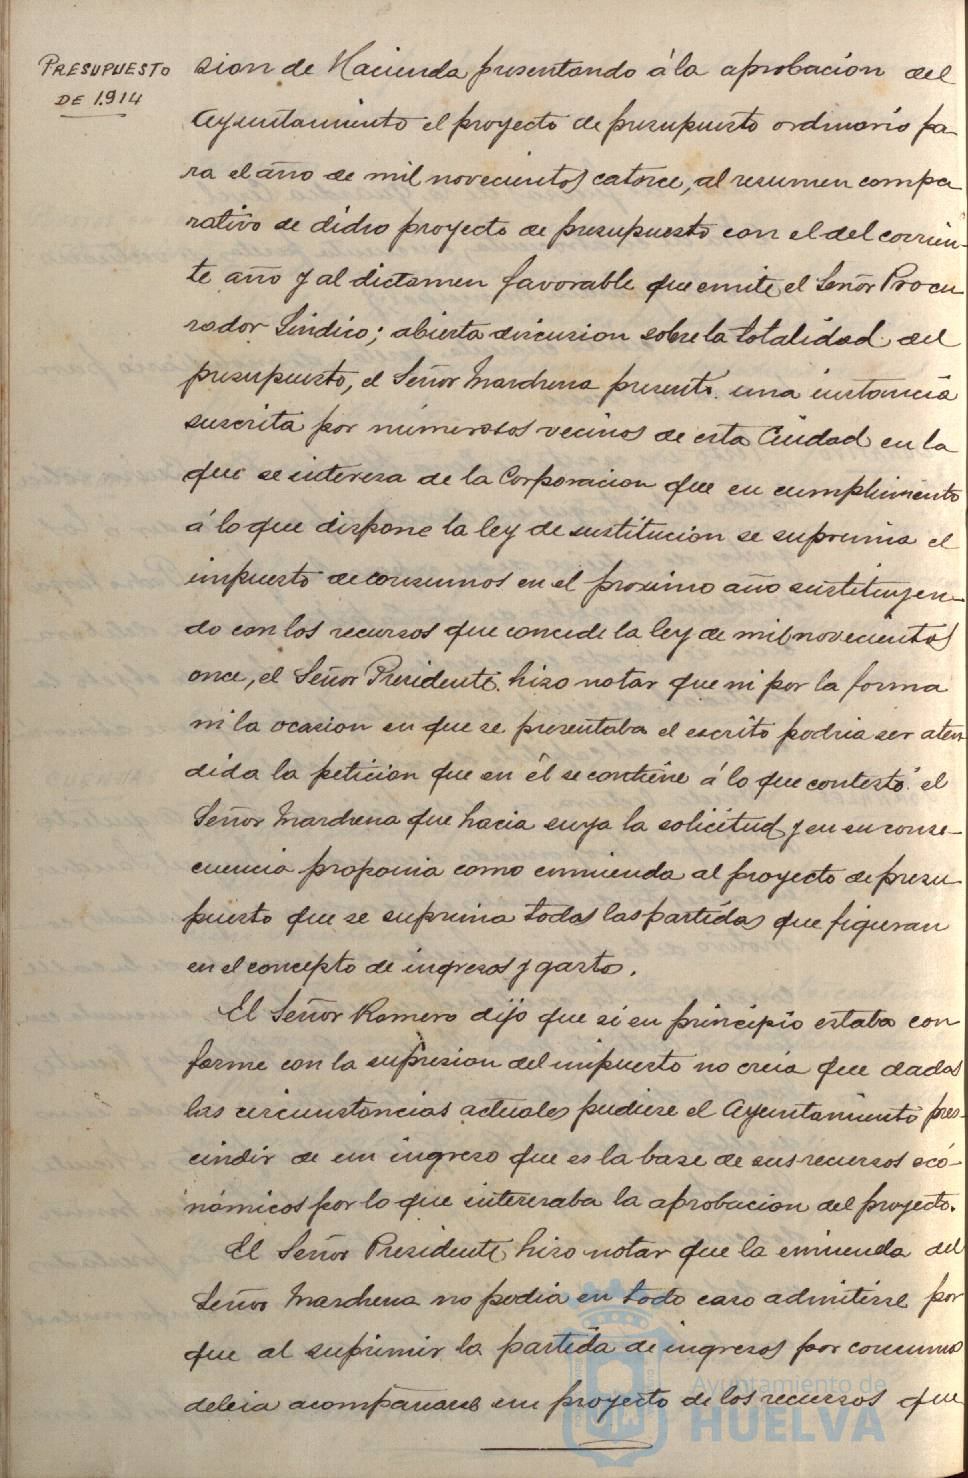 PRESUPUESTO
DE 1914
sion de Hacienda presentando á la aprobacion del
Ayuntamiento el proyecto de presupuesto ordinario pa-
ra el año de mil novecientos catorce, al resumen compa
rativo de dicho proyecto de presupuesto con el del corrien-
te año y al dictamen favorable que emite el Señor Procu
rador Sindico; abierta discusion sobre la totalidad del
presupuesto, el Señor Marchena presentó una instancia
suscrita por numerosos vecinos de esta Ciudad en la
que se interesa de la Corporacion que en cumplimiento
á lo que dispone la ley de sustitucion se suprima el
impuesto de consumos en el proximo año sustituyen-
do con los recursos que concede la ley de mil novecientos
once, el Señor Presidente hizo notar que ni por la forma
ni la ocasion en que se presentaba el escrito podria ser aten-
dida la peticion que en él se contiene á lo que contestó el
Señor Marchena que hacia suya la solicitud y en su conse-
cuencia proponia como enmienda al proyecto de presu
puesto que se suprima todas las partidas que figuran
en el concepto de ingresos y gastos.
El Señor Romero dijo que si en principio estaba con
forme con la supresion del impuesto no creia que dadas
las circunstancias actuales pudiese el Ayuntamiento pres-
cindir de un ingreso que es la base de sus recursos eco-
nómicos por lo que interesaba la aprobacion del proyecto.
El Señor Presidente hizo notar que la enmienda del
Señor Marchena no podia en todo caso admitirse por
que al suprimir la partida de ingresos por consumos
debia acompañarse un proyecto de los recursos que
Ayuntamiento de
HUELVA